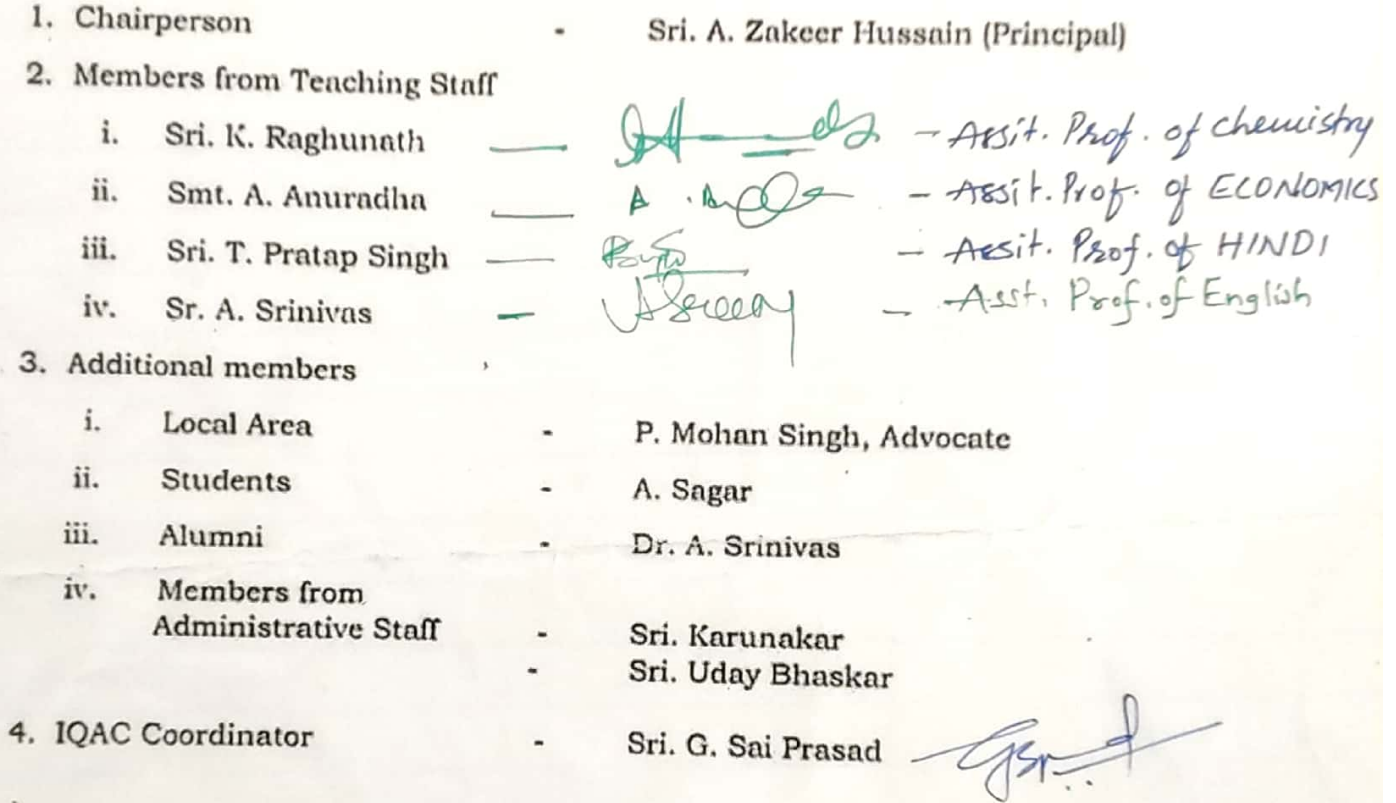 1. Chairperson - Sri. A. Zakeer Hussain (Principal)
2. Members from Teaching Staff
i. Sri. K. Raghunath — - Assit. Prof. of chemistry
ii. Smt. A. Anuradha — - Assit. Prof. of ECONOMICS
iii. Sri. T. Pratap Singh — - Assit. Prof. of HINDI
iv. Sr. A. Srinivas — - Asst. Prof. of English
3. Additional members
i. Local Area - P. Mohan Singh, Advocate
ii. Students - A. Sagar
iii. Alumni - Dr. A. Srinivas
iv. Members from
Administrative Staff - Sri. Karunakar
- Sri. Uday Bhaskar
4. IQAC Coordinator - Sri. G. Sai Prasad